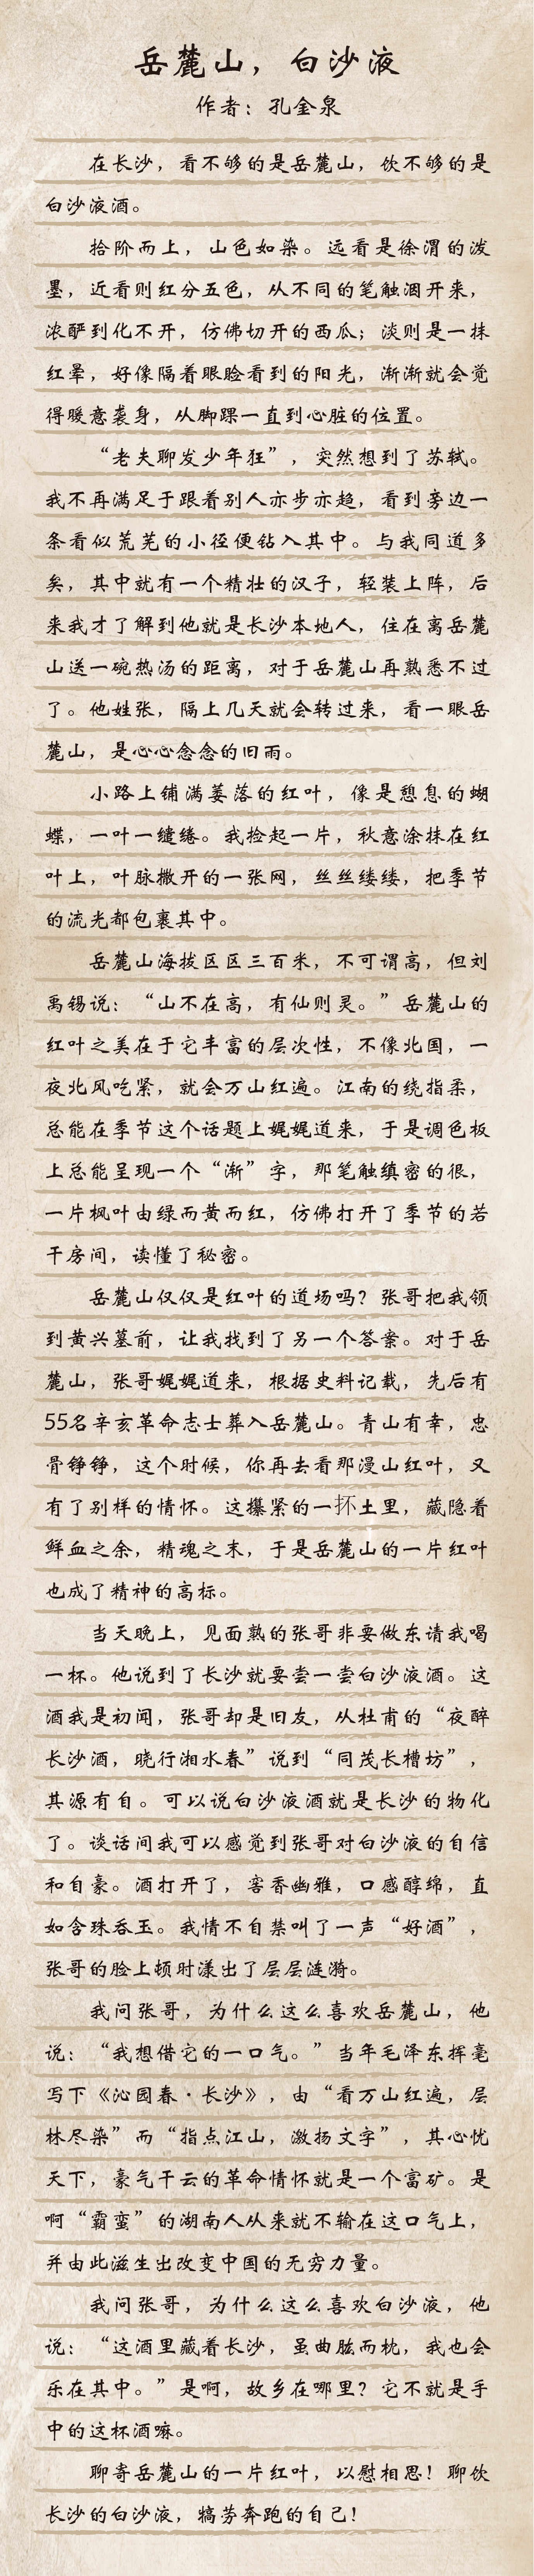 岳麓山，白沙液
作者：孔金泉
在长沙，看不够的是岳麓山，饮不够的是
白沙液酒。
拾阶而上，山色如染。远看是徐渭的泼
墨，近看则红分五色，从不同的笔触洇开来，
浓酽到化不开，仿佛切开的西瓜；淡则是一抹
红晕，好像隔着眼睑看到的阳光，渐渐就会觉
得暖意袭身，从脚踝一直到心脏的位置。
“老夫聊发少年狂”，突然想到了苏轼。
我不再满足于跟着别人亦步亦趋，看到旁边一
条看似荒芜的小径便钻入其中。与我同道多
矣，其中就有一个精壮的汉子，轻装上阵，后
来我才了解到他就是长沙本地人，住在离岳麓
山送一碗热汤的距离，对于岳麓山再熟悉不过
了。他姓张，隔上几天就会转过来，看一眼岳
麓山，是心心念念的旧雨。
小路上铺满萎落的红叶，像是憩息的蝴
蝶，一叶一缱绻。我捡起一片，秋意涂抹在红
叶上，叶脉撒开的一张网，丝丝缕缕，把季节
的流光都包裹其中。
岳麓山海拔区区三百米，不可谓高，但刘
禹锡说：“山不在高，有仙则灵。”岳麓山的
红叶之美在于它丰富的层次性，不像北国，一
夜北风吃紧，就会万山红遍。江南的绕指柔，
总能在季节这个话题上娓娓道来，于是调色板
上总能呈现一个“渐”字，那笔触缜密的很，
一片枫叶由绿而黄而红，仿佛打开了季节的若
干房间，读懂了秘密。
岳麓山仅仅是红叶的道场吗？张哥把我领
到黄兴墓前，让我找到了另一个答案。对于岳
麓山，张哥娓娓道来，根据史料记载，先后有
55名辛亥革命志士葬入岳麓山。青山有幸，忠
骨铮铮，这个时候，你再去看那漫山红叶，又
有了别样的情怀。这攥紧的一抔土里，藏隐着
鲜血之余，精魂之末，于是岳麓山的一片红叶
也成了精神的高标。
当天晚上，见面熟的张哥非要做东请我喝
一杯。他说到了长沙就要尝一尝白沙液酒。这
酒我是初闻，张哥却是旧友，从杜甫的“夜醉
长沙酒，晓行湘水春”说到“同茂长槽坊”，
其源有自。可以说白沙液酒就是长沙的物化
了。谈话间我可以感觉到张哥对白沙液的自信
和自豪。酒打开了，窖香幽雅，口感醇绵，直
如含珠吞玉。我情不自禁叫了一声“好酒”，
张哥的脸上顿时漾出了层层涟漪。
我问张哥，为什么这么喜欢岳麓山，他
说：“我想借它的一口气。”当年毛泽东挥毫
写下《沁园春·长沙》，由“看万山红遍，层
林尽染”而“指点江山，激扬文字”，其心忧
天下，豪气干云的革命情怀就是一个富矿。是
啊“霸蛮”的湖南人从来就不输在这口气上，
并由此滋生出改变中国的无穷力量。
我问张哥，为什么这么喜欢白沙液，他
说：“这酒里藏着长沙，虽曲肱而枕，我也会
乐在其中。”是啊，故乡在哪里？它不就是手
中的这杯酒嘛。
聊寄岳麓山的一片红叶，以慰相思！聊饮
长沙的白沙液，犒劳奔跑的自己！